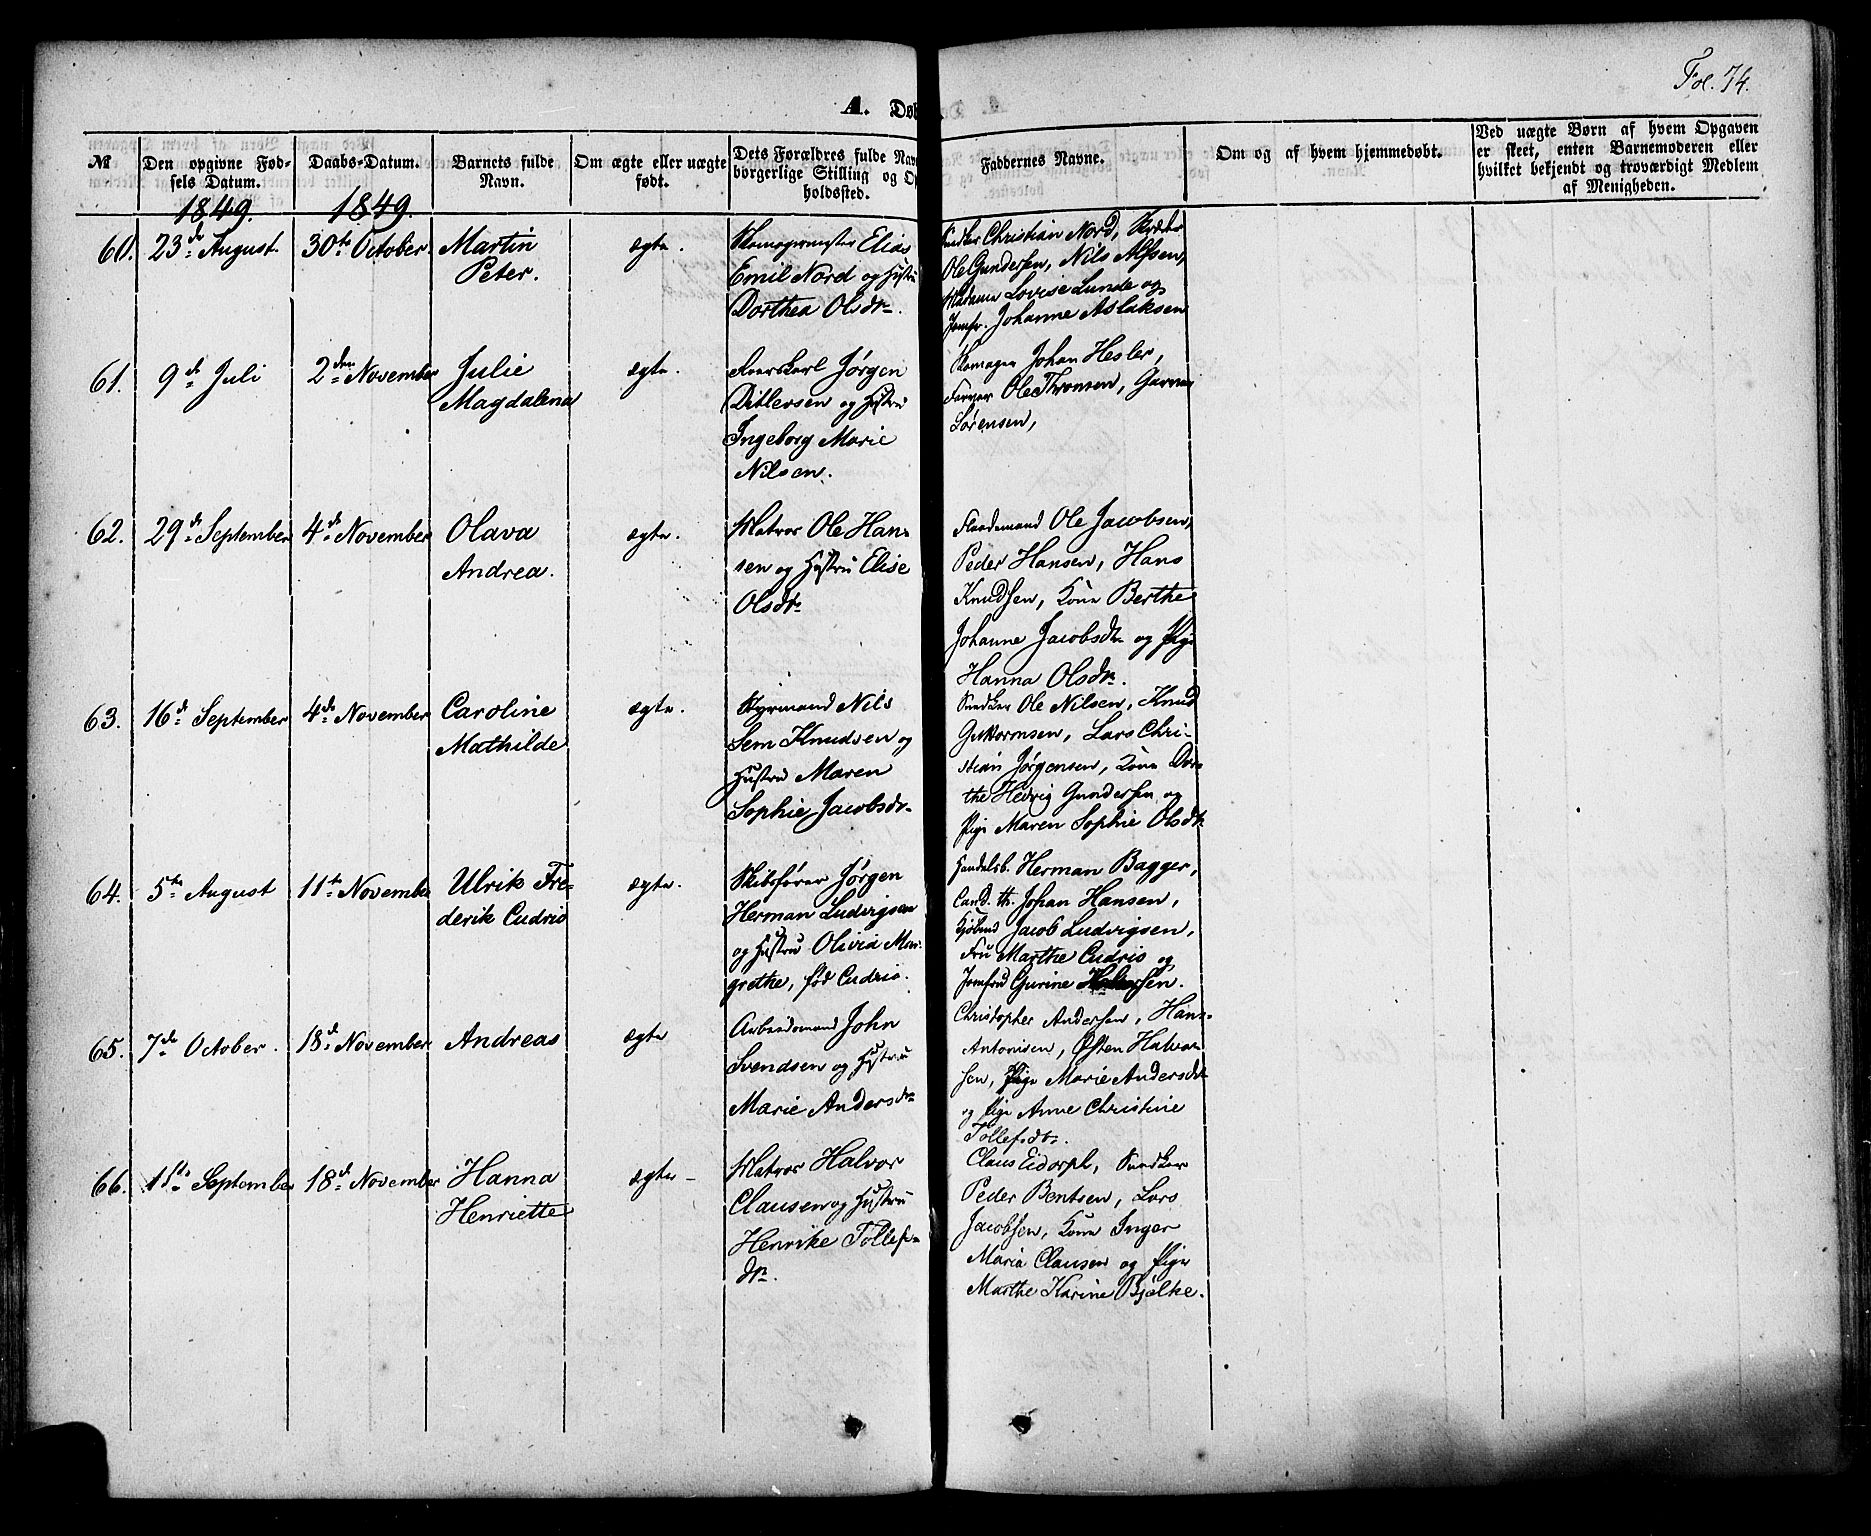 Fol. 74.
A. Døb
№
Den opgivne Fød-
sels Datum.
Daabs-Datum.
Barnets fulde
Navn.
Om ægte eller uægte
født.
Dets Forældres fulde Nav
borgerlige Stilling og Op
holdssted.
Faddernes Navne.
Om og af hvem hjemmedøbt.
Ved uægte Børn af hvem Opgaven
er skeet, enten Barnemoderen eller
hvilket bekjendt og troværdigt Medlem
af Menigheden.
1849. 1849.
60. 23de August 30te October. Martin
Peter.
ægte.
Skomagermester Elias
Emil Nord og Hustru
Dorthea Olsdr.
Snedker Christian Nord,
Ole Gundersen, Nils Alfsen,
Madame Lovise Lunde og
Jomfr. Johanne Aslaksen
61. 9de Juli 2den November Julie
Magdalena
ægte.
Jørgen
Ditlevsen og Hustru
Ingeborg Marie
Nilsen.
Skomager Johan Hesler,
Farver Ole Thronsen, Garver
Sørensen,
62. 29de September 4de November Olava
Andrea.
ægte.
Matros Ole Han-
sen og Hustru Elise
Olsdr.
Ole Jacobsen,
Peder Hansen, Hans
Knudsen, Kone Berthe
Johanne Jacobsdr. og Pige
Hanna Olsdr.
63. 16de September 4de November Caroline
Mathilde
ægte.
Styrmand Nils
Sem Knudsen og
Hustru Maren
Sophie Jacobsdr.
Snedker Ole Nilsen, Knud
Guttormsen, Lars Chri-
stian Jørgensen, Kone Dor-
the Hedvig Gundersen og
Pige Maren Sophie Olsdr.
64. 5te August 11te November Ulrik Fre-
derik Cudrio
ægte.
Skibsfører Jørgen
Herman Ludvigsen
og Hustru Olivia Mar-
grethe, fød Cudrio.
Handelsb. Herman Bagger,
Cand. th. Johan Hansen,
Kjøbmd Jacob Ludvigsen,
Fru Marthe Cudrio og
Jomfru Gurine
65. 7de October. 18de November Andreas
ægte
Arbeidsmand John
Svendsen og Hustru
Marie Andersdr.
Christopher Andersen, Hans
Antonisen, Østen Halvor-
sen, Pige Marie Andersdr.
og Pige Anne Christine
Tollefsdr.
66. 11te September 18de November Hanna
Henriette
ægte
Matros Halvor
Clausen og Hustru
Henrike Tollefs-
dr.
Claus Eidorph, Snedker
Peder Bentsen, Lars
Jacobsen, Kone Inger
Maria Clausen og Pige
Marthe Karine Bjelke.